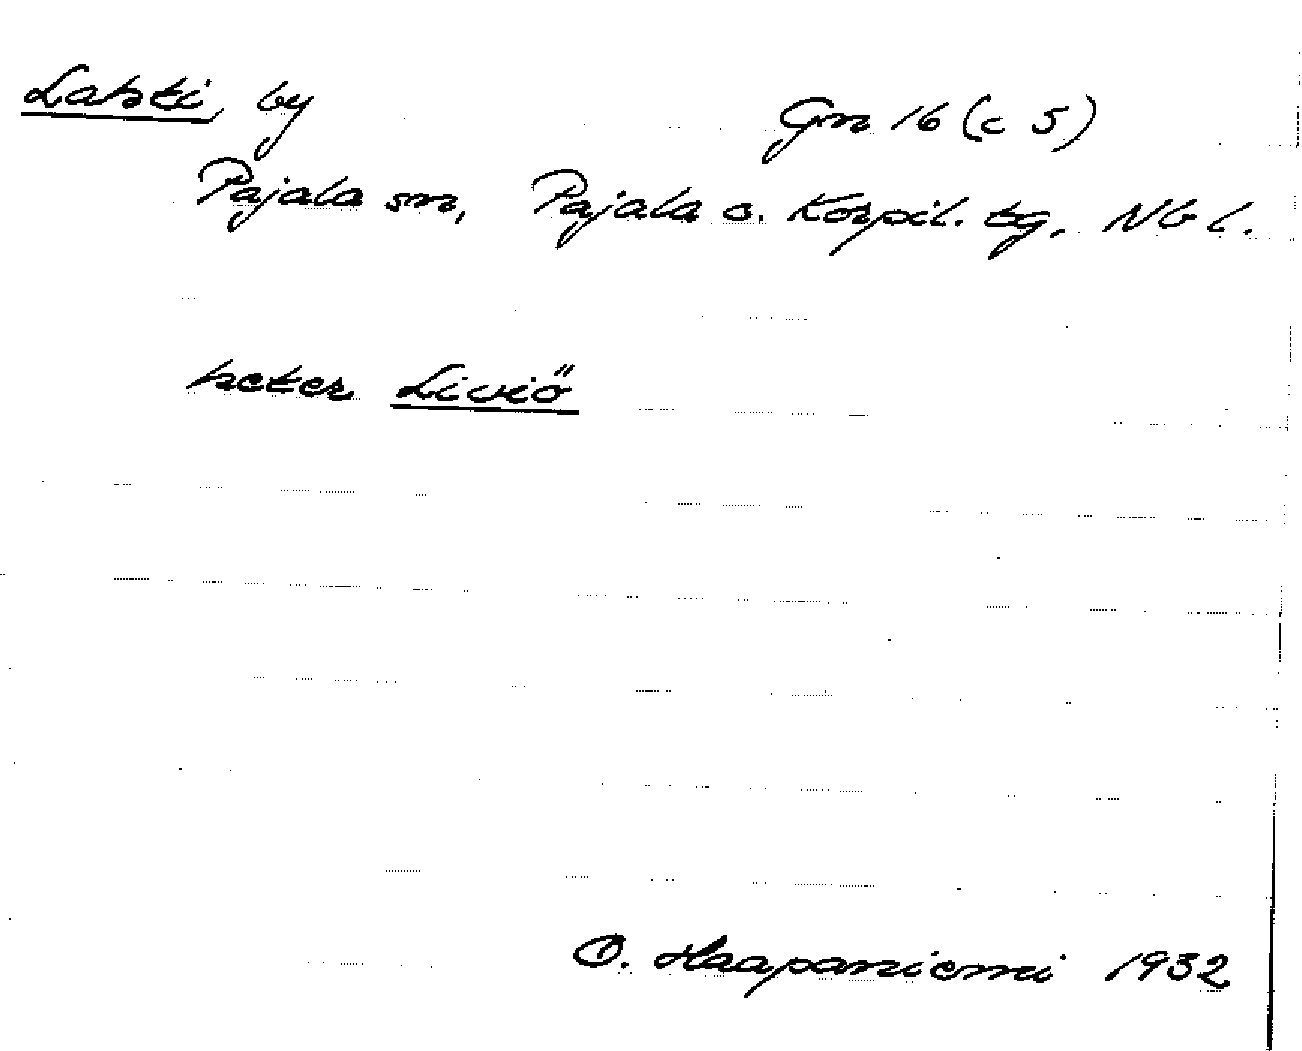 Lahti, by Gm 16 (c 5)
Pajala sn, Pajala o. Korpil. tg, Nb l.
heter Liviö
O. Haapaniemi 1932